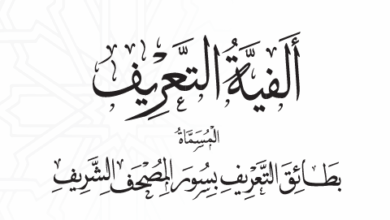 أَلْفِيَّةُ التَّعْرِيفِ
المُسَمَّاةُ
بَطَائِقَ التَّعْرِيفِ بِسُوَرِ المُصْحَفِ الشَّرِيفِ